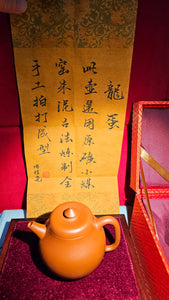 龍蛋
此壺選用原礦小煤
窑朱泥古法煉制全
手工拍打成型